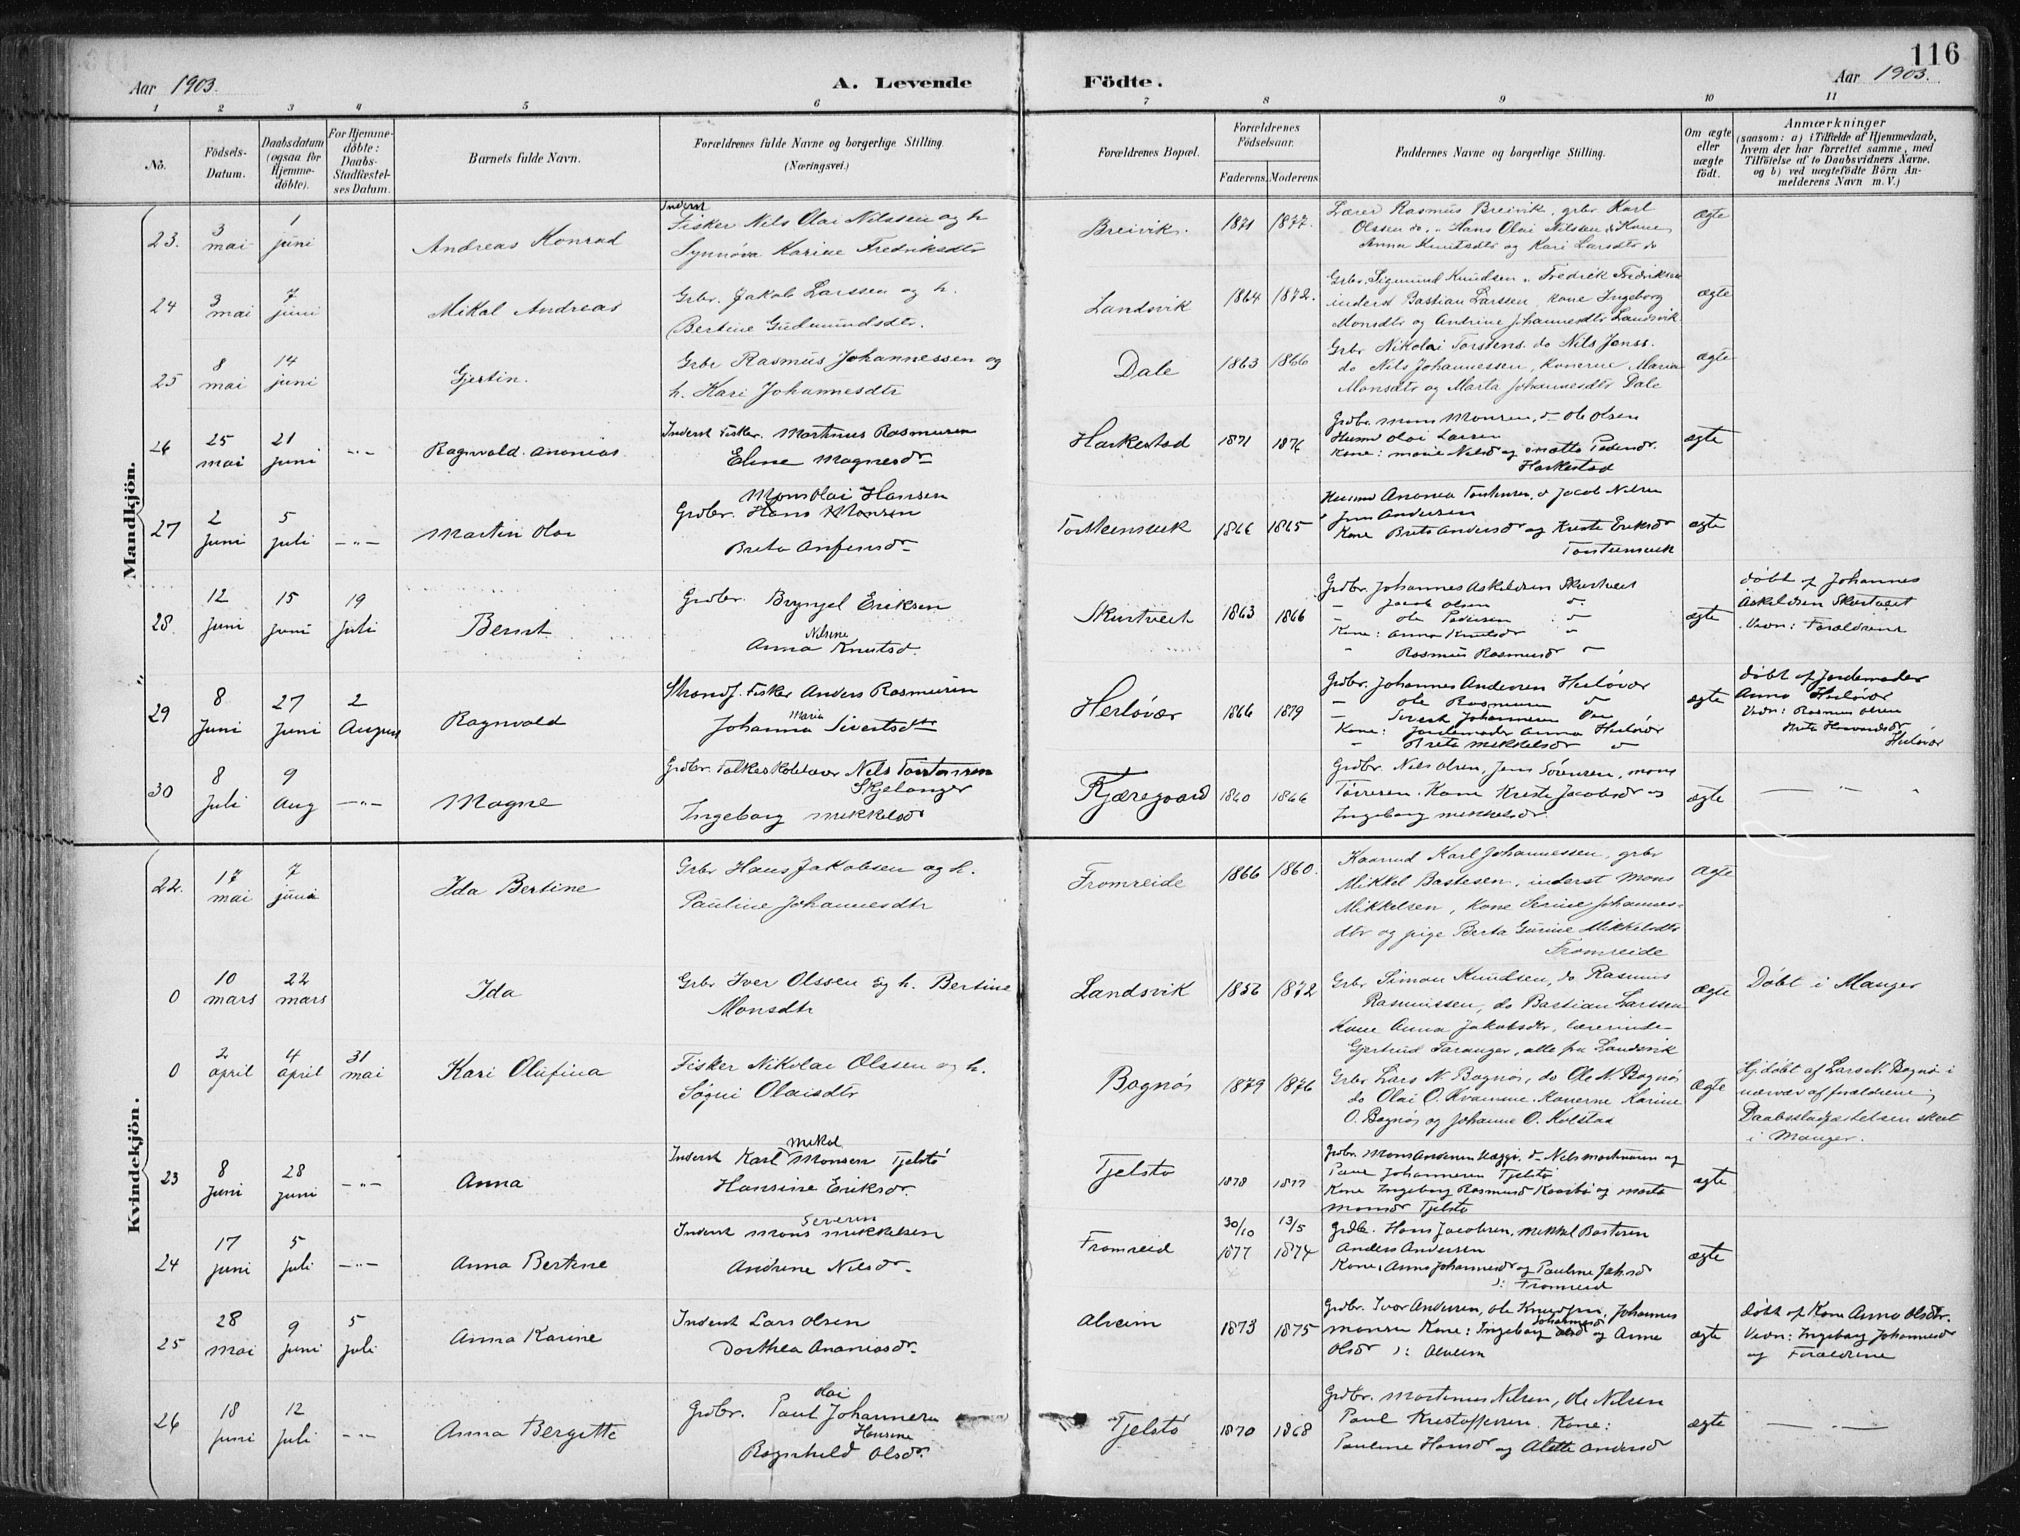 116
Aar 1903.
A. Levende Födte.
Aar 1903.
1 2 3 4 5 6 7 8 9 10 11
No.
Födsels-Datum.
Daabsdatum (ogsaa for Hjemme-döbte).
For Hjemme-döbte: Daabs-Stadfæstel-ses Datum.
Barnets fulde Navn.
Forældrenes fulde Navne og borgerlige Stilling. (Næringsvei.)
Forældrenes Bopæl.
Forældrenes Födselsaar.
Faderens. Moderens.
Faddernes Navne og borgerlige Stilling.
Om ægte eller uægte födt.
Anmærkninger
(saasom: a) i Tilfælde af Hjemmedaab,
hvem der har forrettet samme, med
Tilföielse af to Daabsvidners Navne,
og b) ved uægtefödte Börn An-
melderens Navn m. V.)
Mandkjön.
23. 3 mai 1 juni Andreas Konrad
Inderst
Fisker Nils Olai Nilssen og h.
Synnøva Karine Fredriksdtr
Breivik. 1871 1877.
Lærer Rasmus Breivik, grbr Karl
Olssen do, " Hans Olai Nilsen do Kone
Anna Knutsdtr og Kari Larsdtr do
ægte
24 3 mai 7 juni Mikal Andreas
Grbr. Jakob Larssen og h.
Bertine Gudmundsdtr.
Landsvik 1864 1872.
Grbr. Sigmund Knudsen, Fredrik Fredriksen
inderst Bastian Larssen, kone Ingeborg
Monsdtr og Andrine Johannesdtr Landsvik
ægte
25 8 mai 14 juni Gjertin.
Grbr Rasmus Johannessen og
h. Kari Johannesdtr
Dale 1863 1866
Grbr Nikolai Torstens. do Nils Jenss.
do Nils Johannessen, konerne Maria
Monsdtr og Marta Johannesdtr Dale
ægte
26 25 mai 21 juni -"- Ragnvald Ananias
Inderst Fisker. Martinus Rasmusen
Eline Magnesdr
Harkestad 1871 1876
Grdbr. Mons Monsen, do Ole Olsen
Husmd Olai Larsen
Kone: Marie Nilsdr og Mætte Pedersdr.
Harkestad
ægte
27 2 juni 5 juli -"- Martin Olai
Mons Olai Hansen
Grdbr. Hans Monsen
Breta Anfensdr
Torsteinsvik 1866 1865
Jens Andersen
Kone Brita Andersdr og Kristi Eriksdr
Torsteinsvik
ægte
28. 12 juni 15 juni 19 juli Bernt
Grdbr. Bryngel Eriksen
Nilsine
Anna Knutsd.
Skurtveit 1863 1866
Grdbr. Johannes Askildsen Skurtveit
" Jacob Olsen do
" Ole Pedersen do
Kone: Anna Knutsdr "
" Rasmus Rasmusdr "
ægte
døbt af Johannes
Askildsen Skurtveit
Vidn: Forældrene
29 8 juni 27 juni 2 August Ragnvald
Strands. Fisker Anders Rasmusen
Maria
Johanna Sivertsdtr
Herløvær 1866 1879
Grdbr. Johannes Andersen Herløvær
" Ole Rasmusen do
" Sivert Johannesen do
Kone: Jordemoder Anna Herløvær
" Brita Mikkelsdr do
ægte
døbt af Jordemoder
Anna Herløvær
Vidn: Rasmus Olsen
Herløvær
30 8 juli 9 Aug -"- Magne
Grdbr. Folkeskolelærer Nils Torstensen
Skjelanger
Ingeborg Mikkelsdr
Kjæregaard 1860 1866
Grdbr. Nils Olsen, Jens Sörensen, Mons
Tørresen. Kone Kristi Jacobsdr og
Ingeborg Mikkelsdr.
ægte
Kvindekjön.
22. 17 mai 7 juni Ida Bertine
Grbr Hans Jakobsen og h.
Pauline Johannesdtr
Fromreide 1866 1860.
Kaarmd Karl Johannessen, grbr
Mikkel Bastesen, inderst Mons
Mikkelsen, kone Serine Johannes-
dtr og pige Berta Gurine Mikkelsdtr
Fromreide
ægte
0 10 mars 22 mars Ida
Grbr Iver Olssen og h. Bertine
Monsdtr
Landsvik 1856 1872
Grbr Simon Knudsen, do Rasmus
Rasmussen, do Bastian Larssen
Kone Anna Jakobsdtr, lærerinde
Gjertrud Faranger, alle fra Landsvik
ægte
Døbt i Manger
0 2 april 4 april 31 mai Kari Olufina
Fisker Nikolai Olssen og h.
Søgni Olaisdtr
Bognøs 1879 1876
Grbr Lars N. Bognøs, do Ole N. Bognøs
do Olai O. Kvamme. Konerne Karine
O. Bognøs og Johanne O. Kolstad
ægte
Hj.døbt af Lars N. Bognø i
nærvær af forældrene;
Daabsstadfæstelsen skeet
i Manger.
23 8 juni 28 juni -"- Anna
Mikal
Inderst Karl Monsen Tjelstø
Hansine Eriksdr.
Tjelstø 1878 1877
Grdbr. Mons Andersen Uæggø, do Nils Martinusen og
Paul Johannesen Tjelstø
Kone Ingeborg Rasmusd Kaarbø og Marta
Monsdr Tjelstø
ægte
24 17 juni 5 juli -"- Anna Bertine
Severin
Inderst Mons Mikkelsen
Andrine Nilsdr
Fromreid 30/10 1877 13/5 1874
Grdbr. Hans Jacobsen, Mikkel Bastesen
Anders Andersen
Kone: Anna Johannesdr og Pauline Joh.sdr
): Fromreid
ægte
25 28 mai 9 juni 5 juli Anna Karine
Inderst Lars Olsen
Dorthea Ananiasdr.
Alveim 1873 1875
Grdbr. Ivar Andersen, Ole Knudsen, Johannes
Johannesd
Monsen Kone: Ingeborg Olsd og Anne
Olsdr ): Alveim
ægte
døbt af Kone Anna Olsdr.
Vidn: Ingeborg Johannesdr
og Forældrene
26 18 juni 12 juli -"- Anna Bergitte
Olai
Grdbr. Paul Johannesen
Hansine
Ragnhild Olsdr.
Tjelstø 1870 1868
Grdbr. Martinus Nilsen, Ole Nilsen
Paul Kristoffersen. Kone:
Pauline Hansdr og Alette Andersdr
ægte